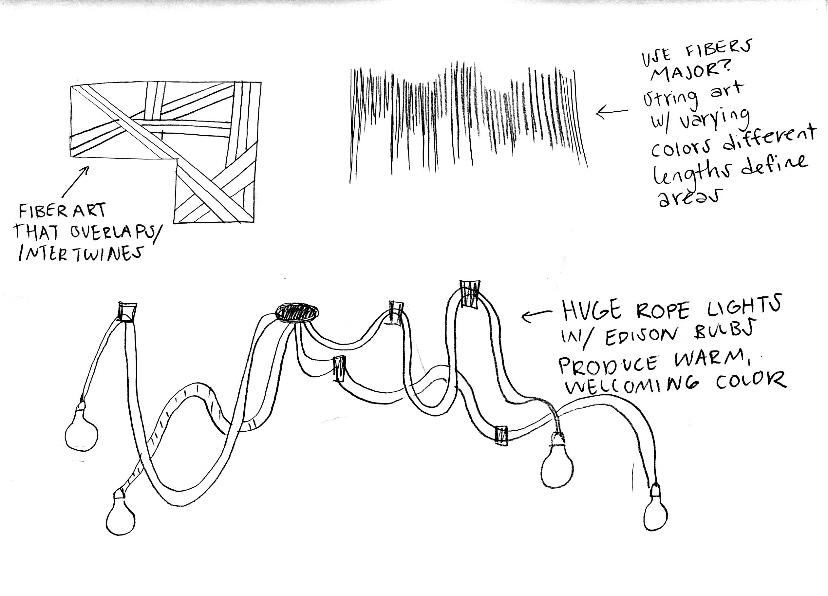 USE FIBERS
MAJOR?
String art
w/ varying
colors different
lengths define
areas
FIBER ART
THAT OVERLAPS/
INTERTWINES
HUGE ROPE LIGHTS
W/ EDISON BULBS
PRODUCE WARM,
WELCOMING COLOR